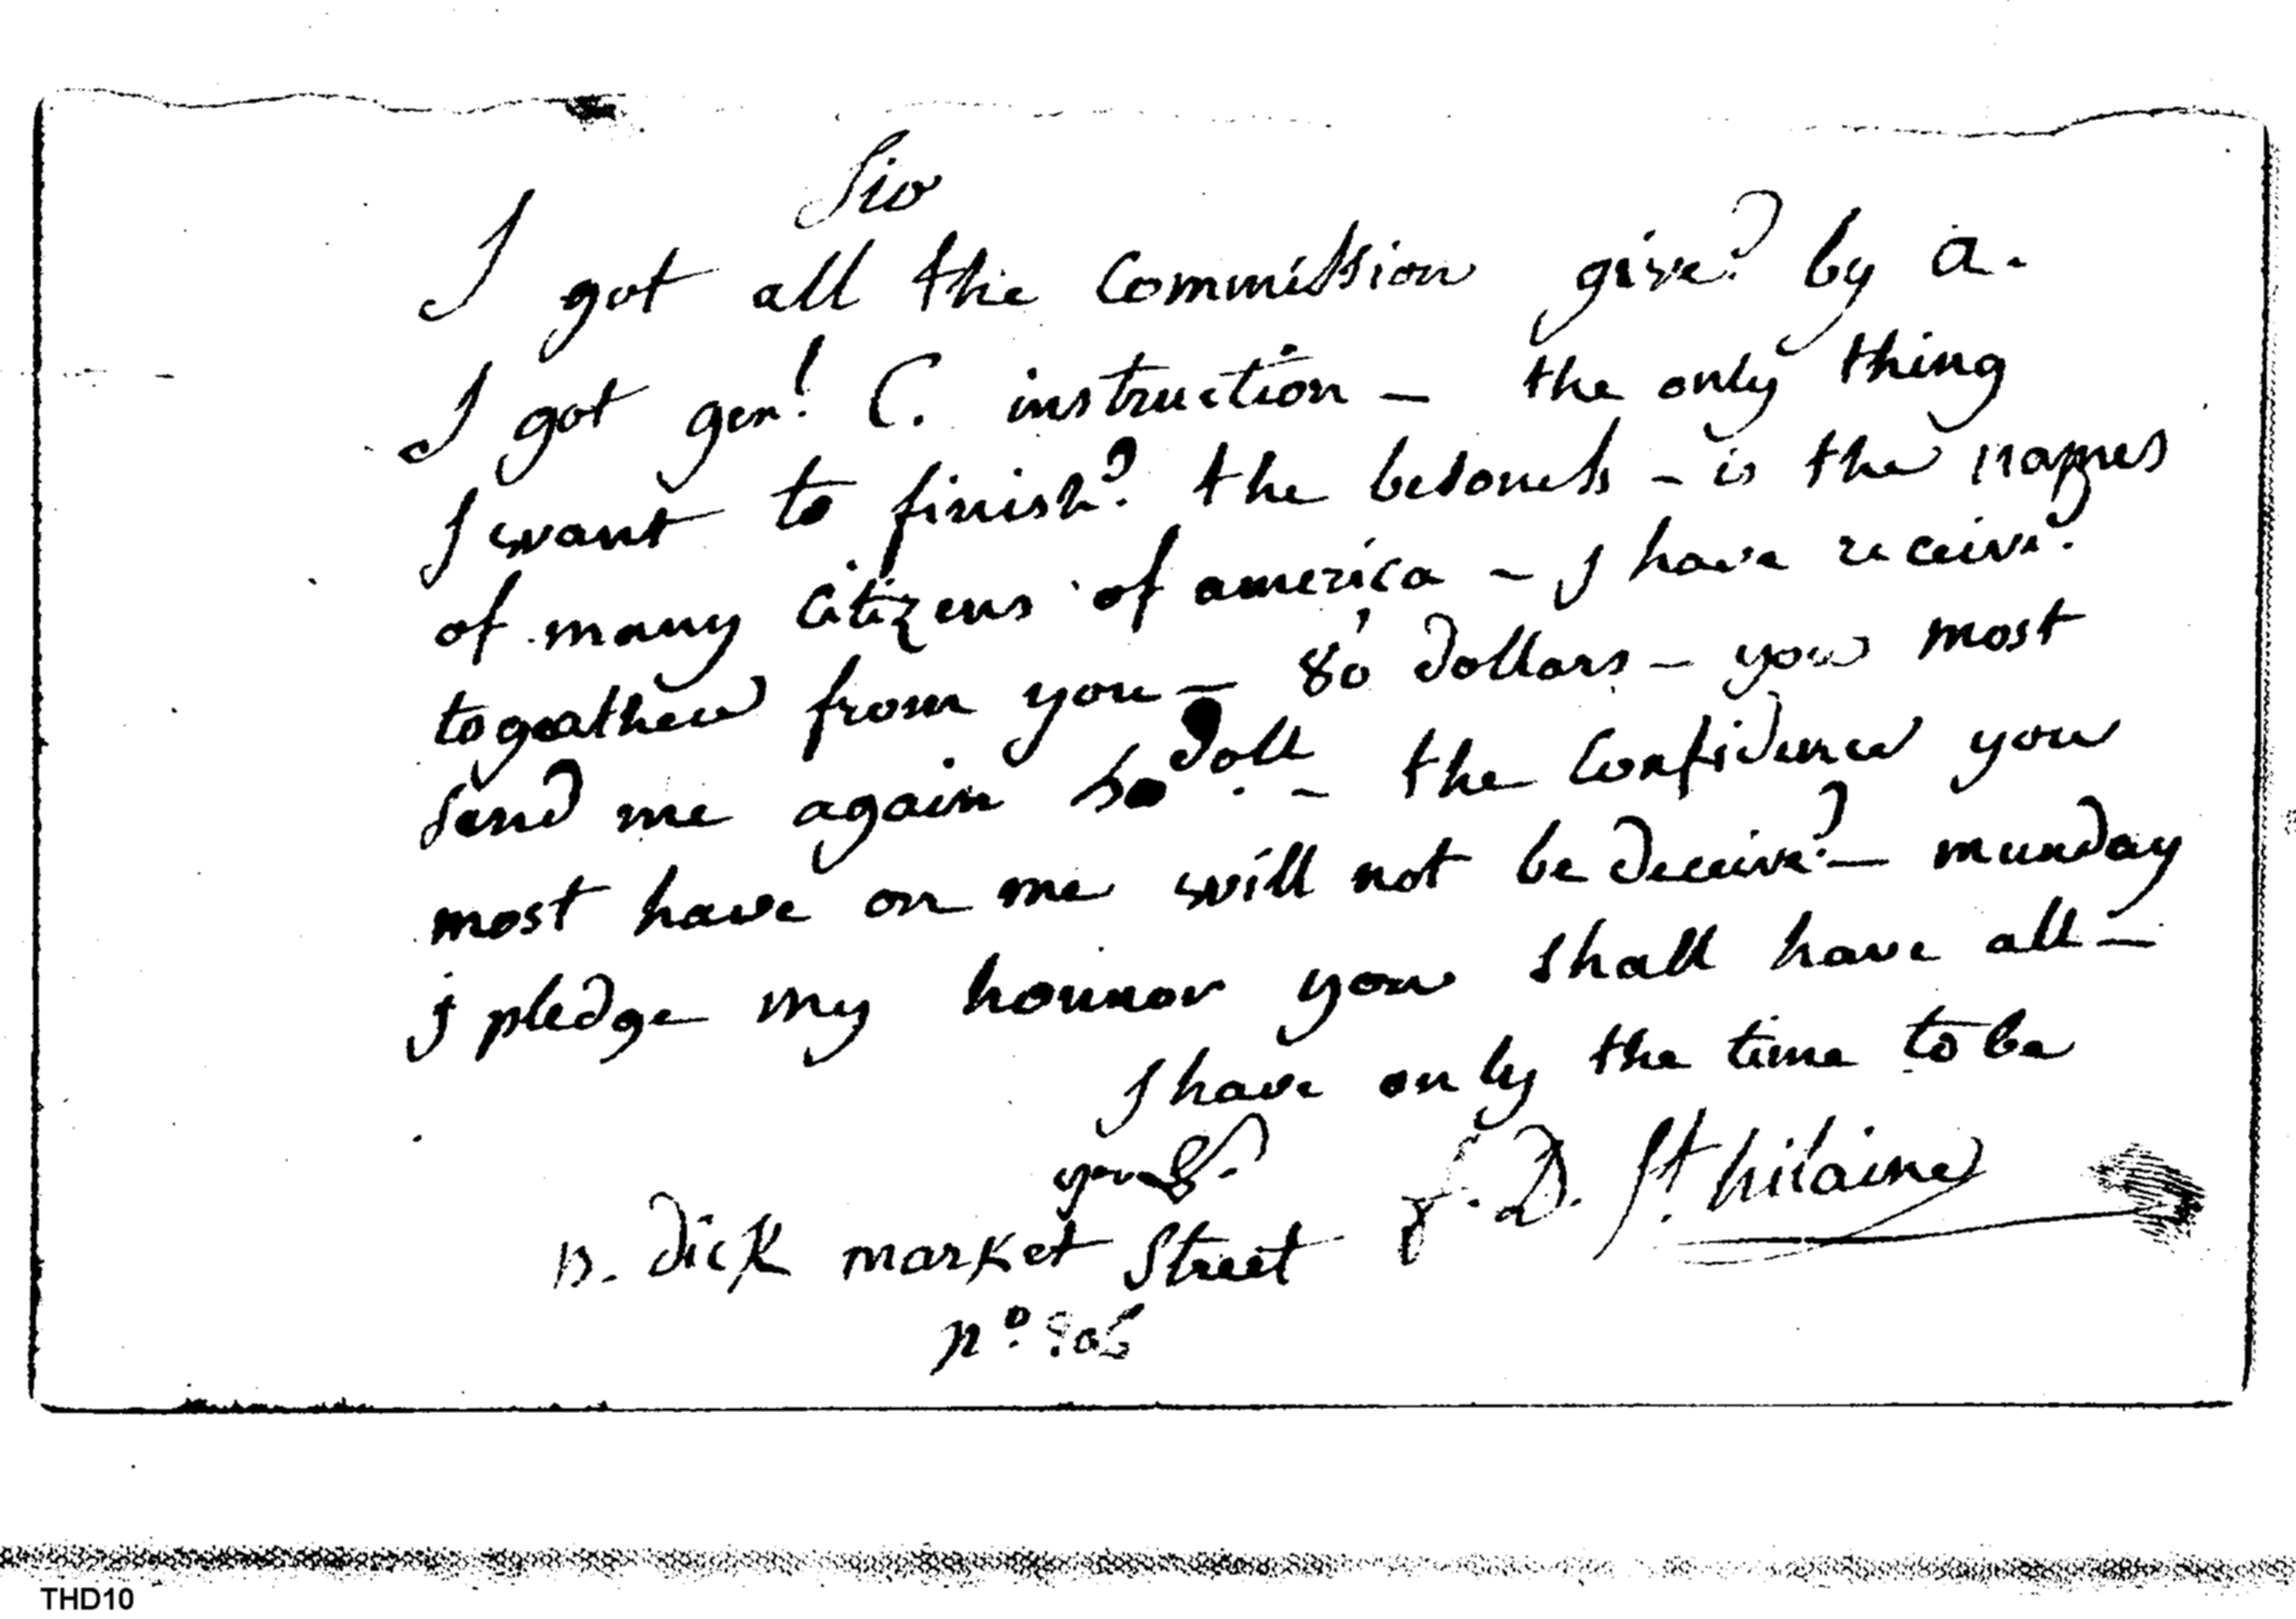 Sir
I got all the Commission give.d by a.
I got gen.l C. instruction — the only thing
I want to finish.d the – is the names
of many Citizens of america – I have receive.d
togeather from you — 80 dollars – you most
send me again doll. – the Confidence you
most have on me will not be deceive.d — munday
j pledge my honnor you shall have all —
I have only the time to be
your &.
D. St hilaire
dick market Street
no.
THD10